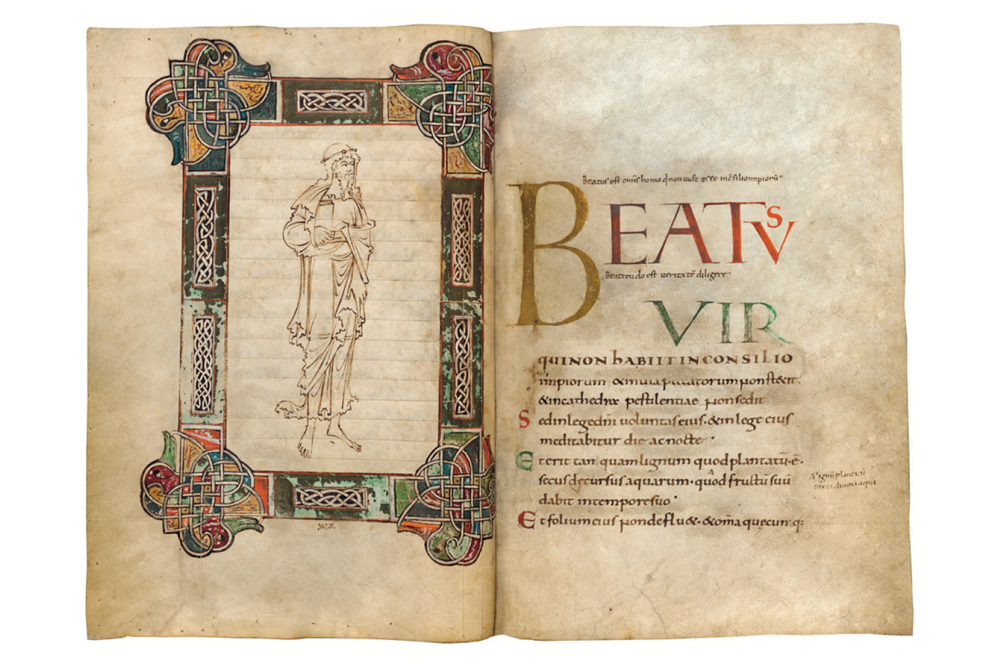 Beatus est homo non
BEATVS
Beatitudo est ueritatē diligere·
VIR
quinon habiit inconsilio
impiorum &inuia peccatorum nonstetit
&incathedra pestilentiae nonsedit
Sedinlegedn̄i uoluntas eius·&inlege eius
meditabitur die acnocte·
Eterit tan quamlignum quodplantatū·ē·
secusdecursus aquarum·quodfructūsuū
dabit intemporesuo·
Etfoliumeius nondeflu&·&om̄a quecumq;